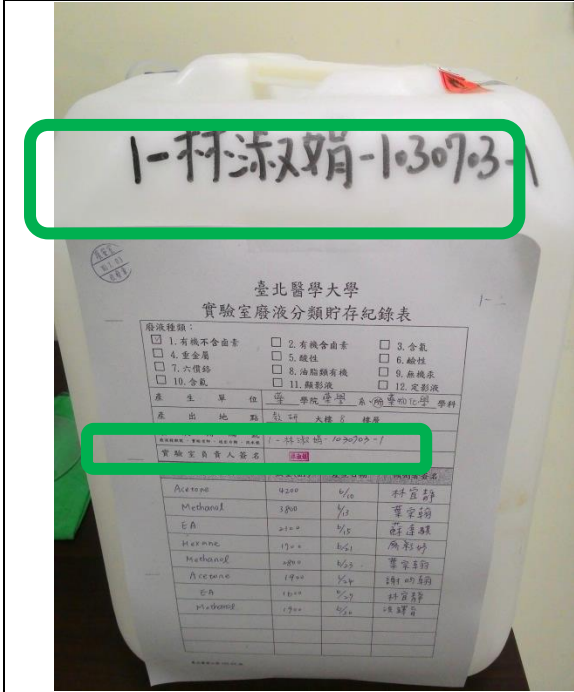 1-林淑娟-1030703-1
臺北醫學大學
實驗室廢液分類貯存紀錄表
1-
廢液種類：
☑ 1.有機不含鹵素 ☐ 2.有機含鹵素 ☐ 3.含氰
☐ 4.重金屬 ☐ 5.酸性 ☐ 6.鹼性
☐ 7.六價鉻 ☐ 8.油脂類有機 ☐ 9.無機汞
☐ 10.含氟 ☐ 11.顯影液 ☐ 12.定影液
產生單位 藥 學院 藥學 系 生物化學 學科
產出地點 教研 大樓 8 樓層
1-林淑娟-1030703-1
實驗室負責人簽名
Acetone 4200 6/10 林宜靜
Methanol 3800 6/13 葉宗翰
EA 2100 6/15
Hexane 1700 6/21
Methanol 2800 6/23 葉宗翰
Acetone 1900 6/24 謝昀翰
EA 1600 6/27 林宜靜
Methanol 1900 6/30